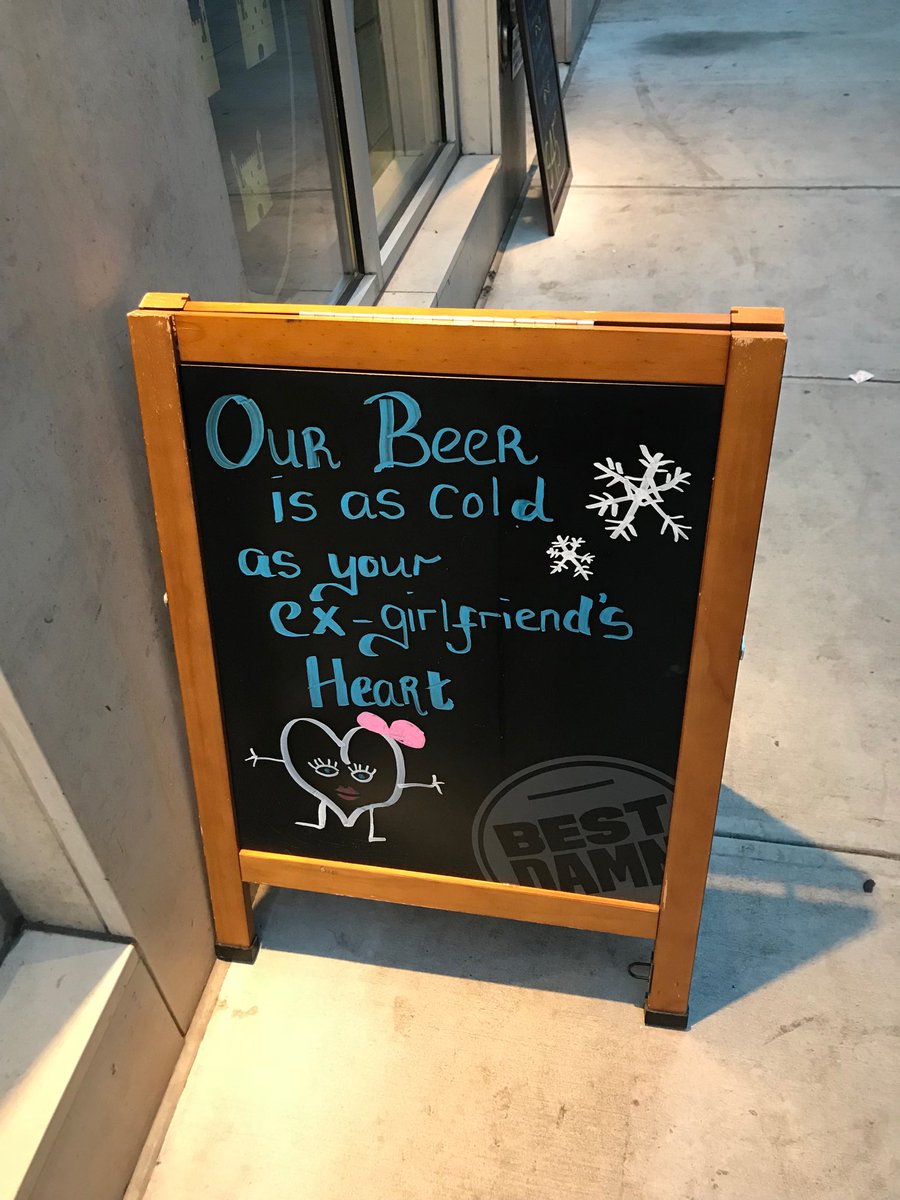 Our Beer
is as cold
as your
ex-girlfriend's
Heart
BEST
DAMN